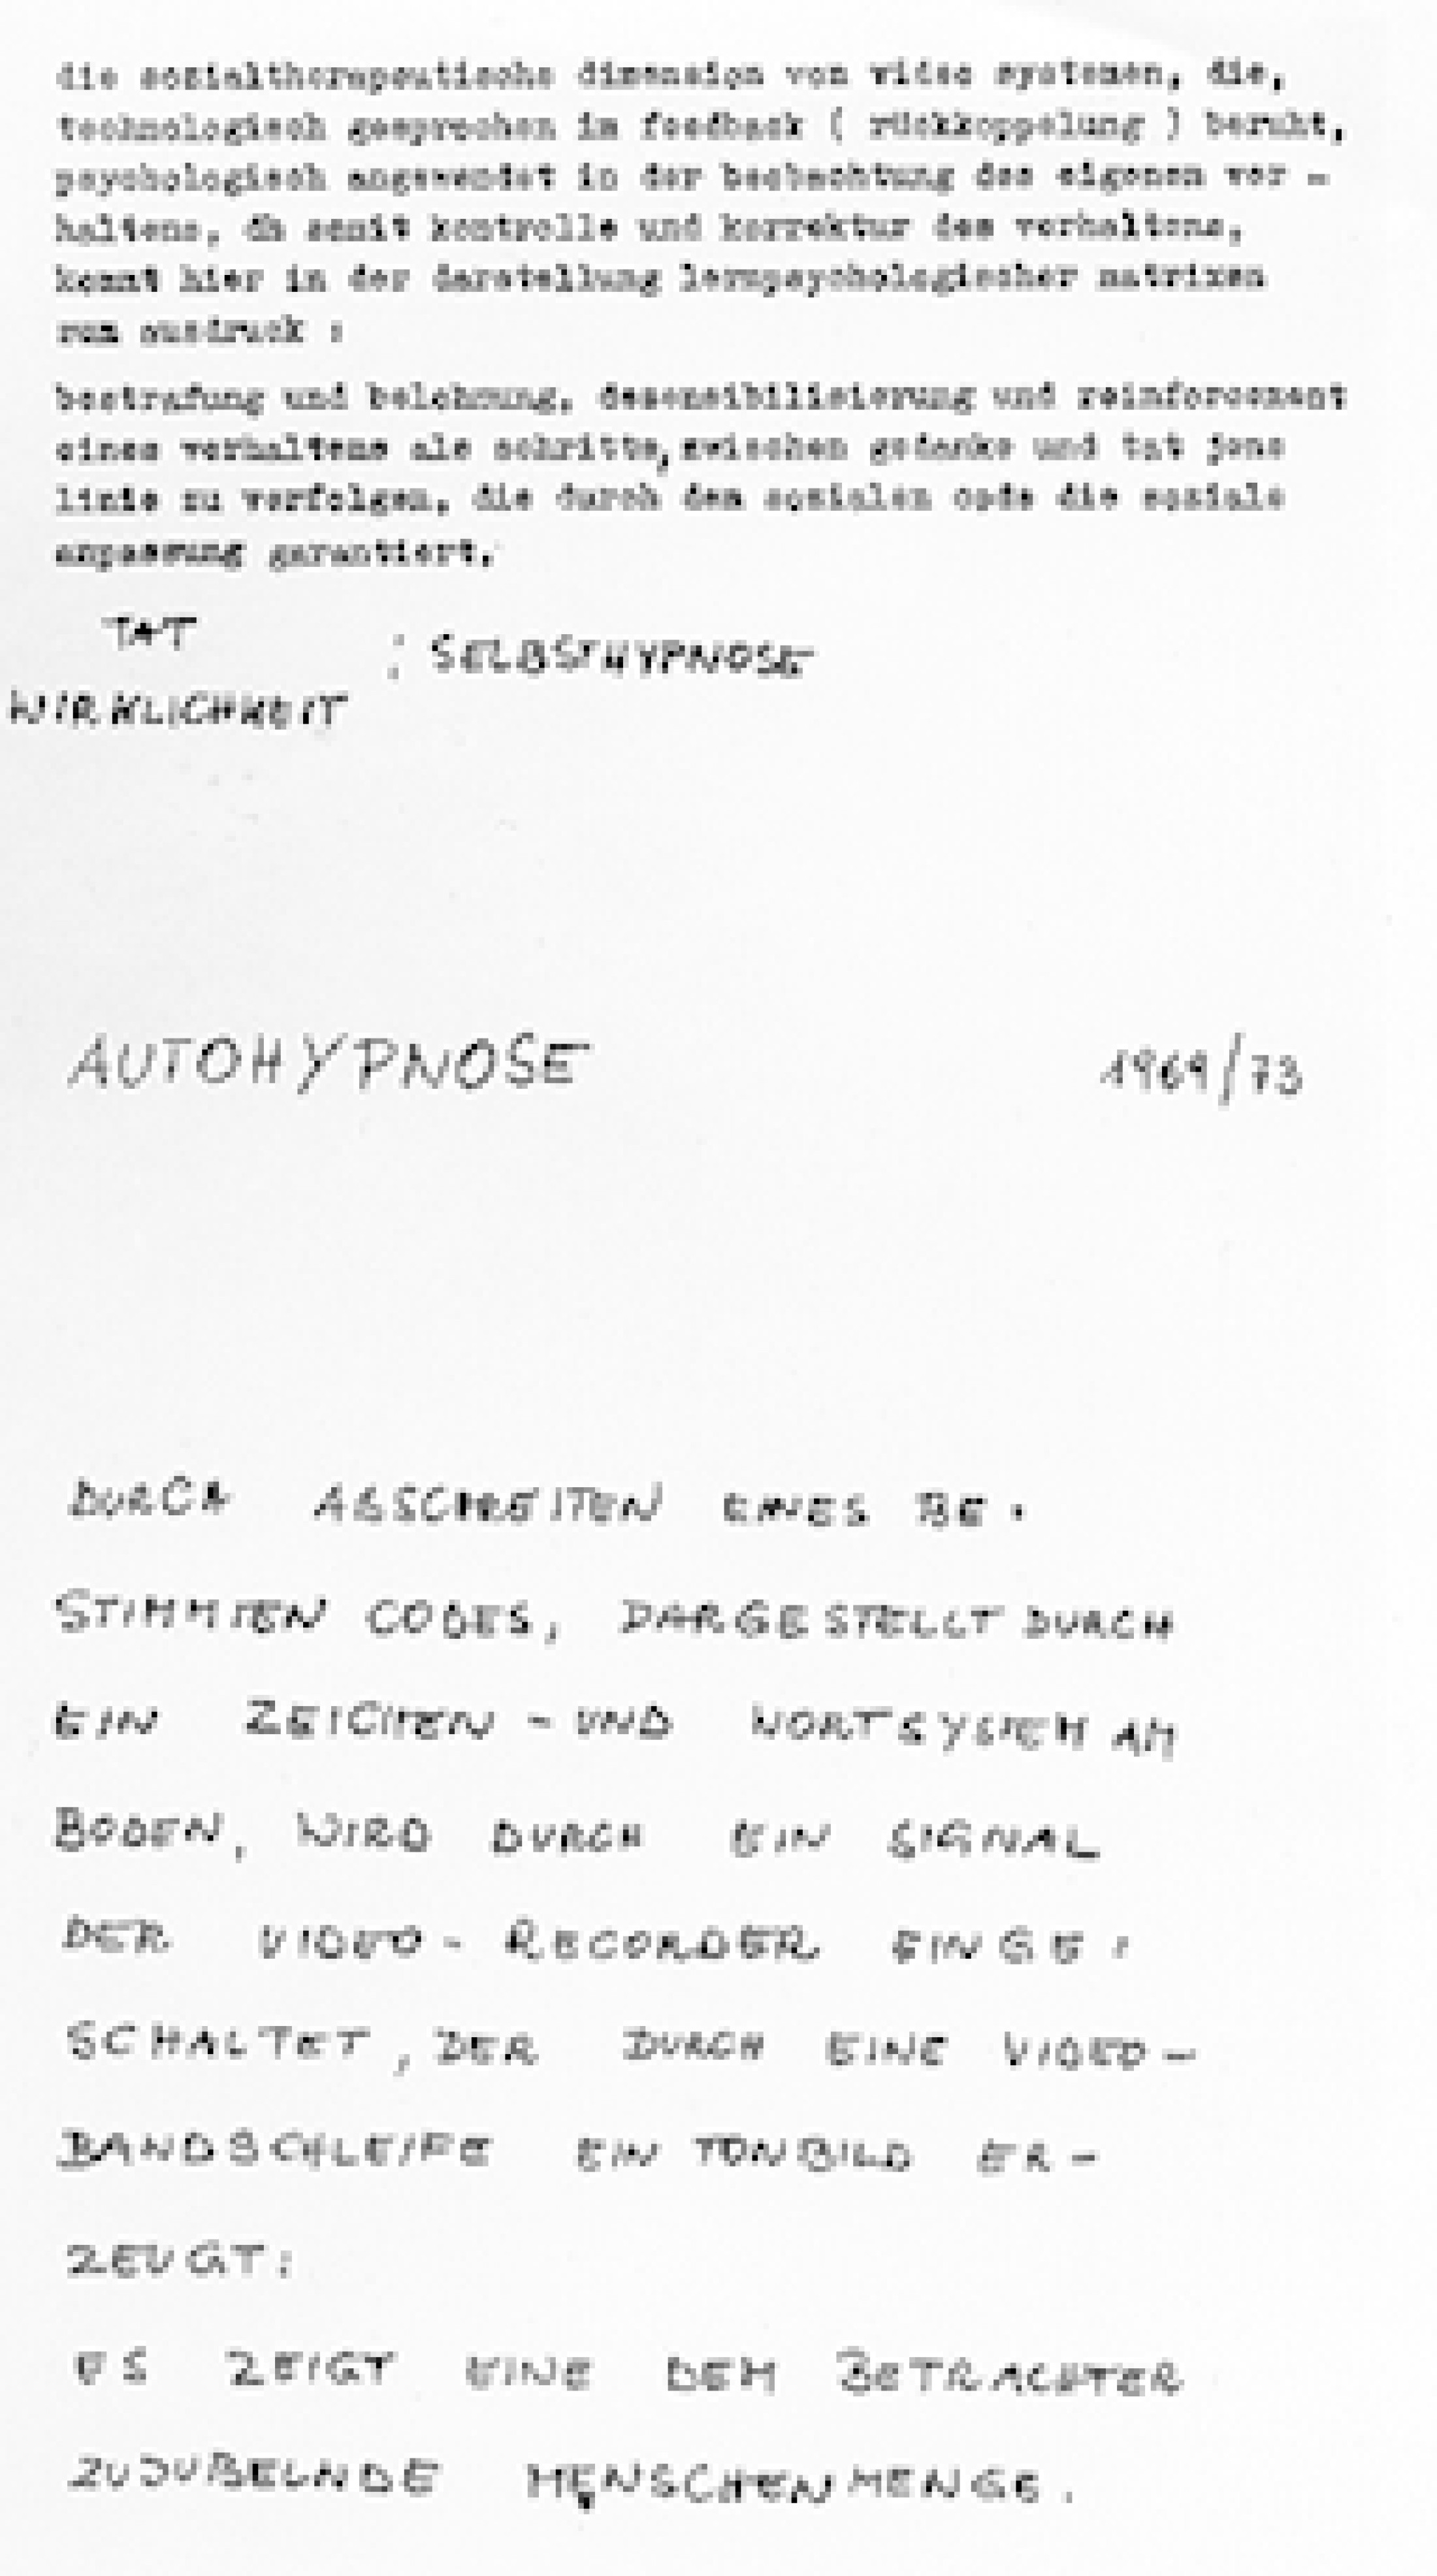 die sozialtherapeutische dimension von video systemen, die,
technologisch gesprochen im feedback ( rückkoppelung ) beruht,
psychologisch angewendet in der beobachtung des eigenen ver -
haltens, dh somit kontrolle und korrektur des verhaltens,
kommt hier in der darstellung lernpsychologischer matrixen
zum ausdruck :
bestrafung und belohnung, desensibilisierung und reinforcement
eines verhaltens als schritte, zwischen gedanke und tat jene
linie zu verfolgen, die durch den sozialen code die soziale
anpassung garantiert.
TAT
: SELBSTHYPNOSE
WIRKLICHKEIT
AUTOHYPNOSE 1969/73
DURCH ABSCHREITEN EINES BE-
STIMMTEN CODES, DARGESTELLT DURCH
EIN ZEICHEN - UND WORTSYSTEM AM
BODEN, WIRD DURCH EIN SIGNAL
DER VIDEO - RECORDER EINGE-
SCHALTET, DER DURCH EINE VIDEO-
BANDSCHLEIFE EIN TONBILD ER-
ZEUGT:
ES ZEIGT EINE DEM BETRACHTER
ZUJUBELNDE MENSCHENMENGE.